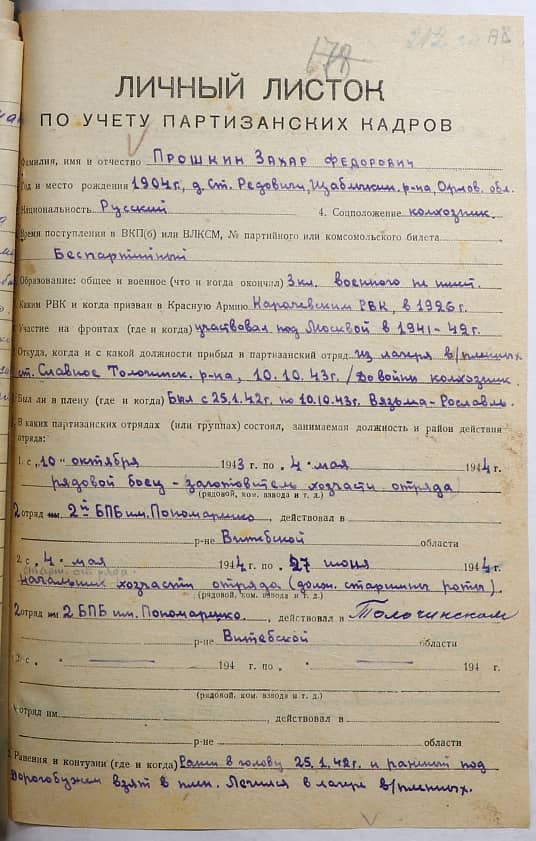 178
ЛИЧНЫЙ ЛИСТОК
ПО УЧЕТУ ПАРТИЗАНСКИХ КАДРОВ
Фамилия, имя и отчество Прошкин Захар Федорович
Год и место рождения 1904 г., д. Ст. Редовичи, Щаблыкин. р-на, Орлов. обл.
Национальность Русский 4. Соцположение колхозник.
Время поступления в ВКП(б) или ВЛКСМ, № партийного или комсомольского билета
Беспартийный
Образование: общее и военное (что и когда окончил) 3 кл. военного не имет.
Каким РВК и когда призван в Красную Армию Карачевским РВК, в 1926 г.
Участие на фронтах (где и когда) участвовал под Москвой в 1941-42 г.
Откуда, когда и с какой должности прибыл в партизанский отряд из лагеря в/пленных
ст. Славное Толочинск. р-на, 10.10.43г. / До войны колхозник.
Был ли в плену (где и когда) Был с 25.1.42г. по 10.10.43г. Вязьма-Рославль.
В каких партизанских отрядах (или группах) состоял, занимаемая должность и район действия
отряда:
1. с „10" октября 1943 г. по 4 мая 1944 г.
рядовой боец - заготовитель хозчасти отряда
(рядовой, ком. взвода и т. д.)
2 отряд им 2й БПБ им. Пономаренко, действовал в
р-не Витебской области
2. с „4" мая 1944 г. по 27 июня 1944 г.
начальник хозчасти отряда (долж. старшины роты).
(рядовой, ком. взвода и т. д.)
2 отряд им 2 БПБ им. Пономаренко, действовал в Толочинском
р-не Витебской области
3. с „ " 194 г. по „ 194 г.
(рядовой, ком. взвода и т. д.)
отряд им. , действовал в
р-не области
Ранения и контузии (где и когда) Ранен в голову 25.1.42г. и раненый под
Дорогобужем взят в плен. Лечился в лагере в/пленных.